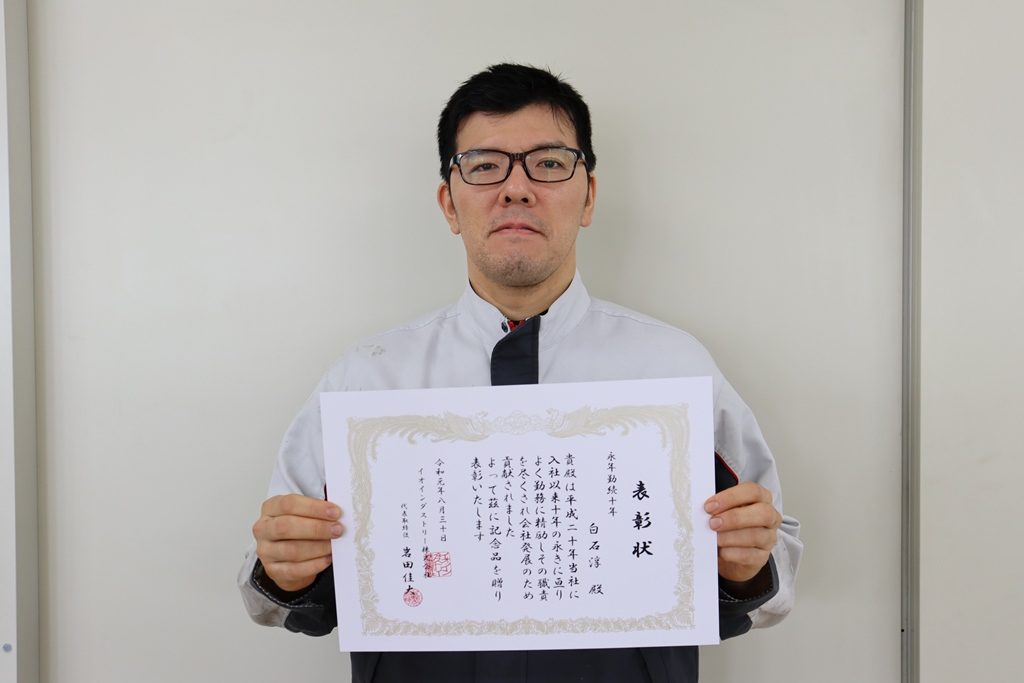 表彰状
永年勤続十年
白石淳 殿
貴殿は平成二十年当社に
入社以来十年の永きに亘り
よく勤務に精励しその職責
を尽くされ会社発展のため
貢献されました
よって茲に記念品を贈り
表彰いたします
令和元年八月三十日
イオインダストリー株式会社
代表取締役 岩田佳大